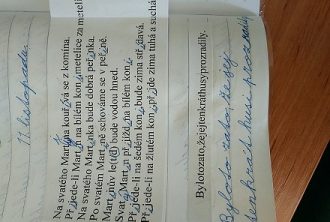 11. listopadu
Na svatého Martina kouřívá se z komína.
Přijede-li Martin na bílém koni, metelice za metelic
Na svatého Martina bude dobrá peřinka.
Po svatém Martině schováme se v peřině.
Martinův let(d) bude vodou hned.
Svatý Martin přijíždí na bílém koni.
Přijede-li Martin na šedém koni, bude zima střídavá.
Přijede-li Martin na žlutém koni, přijde zima tuhá a suchá
Bylotozato,žejejtenkráthusyprozradily.
Bylo to za to, že jej
tenkrát husi prozradily